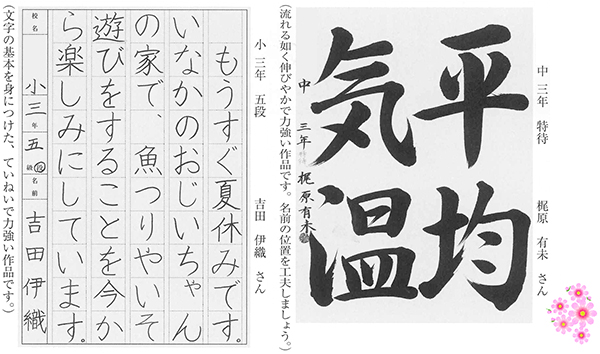 中 三年 特待 梶原 有未 さん
平均
気温
中 三年 梶原有未
(流れる如く伸びやかで力強い作品です。名前の位置を工夫しましょう。)
小 三年 五段 吉田 伊織 さん
もうすぐ夏休みです。
いなかのおじいちゃん
の家で、魚つりやいそ
遊びをすることを今か
ら楽しみにしています。
校名 小三年 五級段 名前 吉田伊織
(文字の基本を身につけた、ていねいで力強い作品です。)